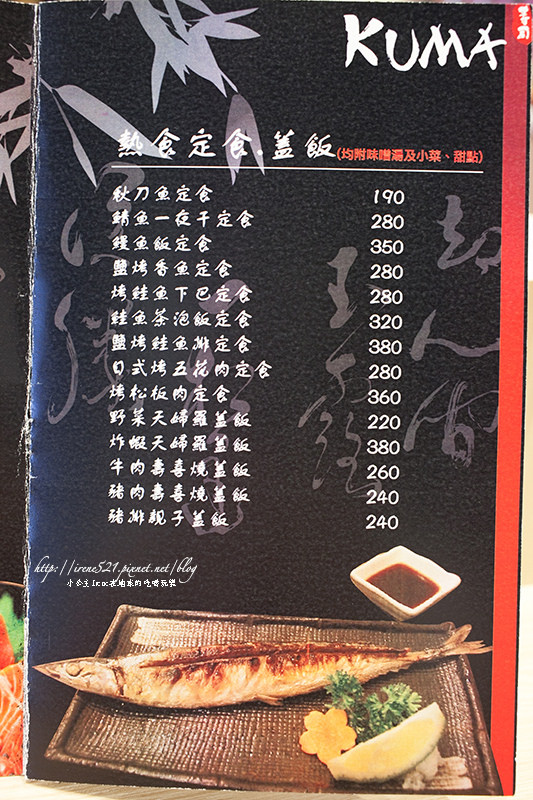 KUMA
熱食定食.蓋飯(均附味噌湯及小菜、甜點)
秋刀魚定食 190
鯖魚一夜干定食 280
鰻魚飯定食 350
鹽烤香魚定食 280
烤鮭魚下巴定食 280
鮭魚茶泡飯定食 320
鹽烤鮭魚排定食 380
日式烤五花肉定食 280
烤松板肉定食 360
野菜天婦羅蓋飯 220
炸蝦天婦羅蓋飯 380
牛肉壽喜燒蓋飯 260
豬肉壽喜燒蓋飯 240
豬排親子蓋飯 240
http://irene521.pixnet.net/blog
小公主Irene在地球的吃喝玩樂